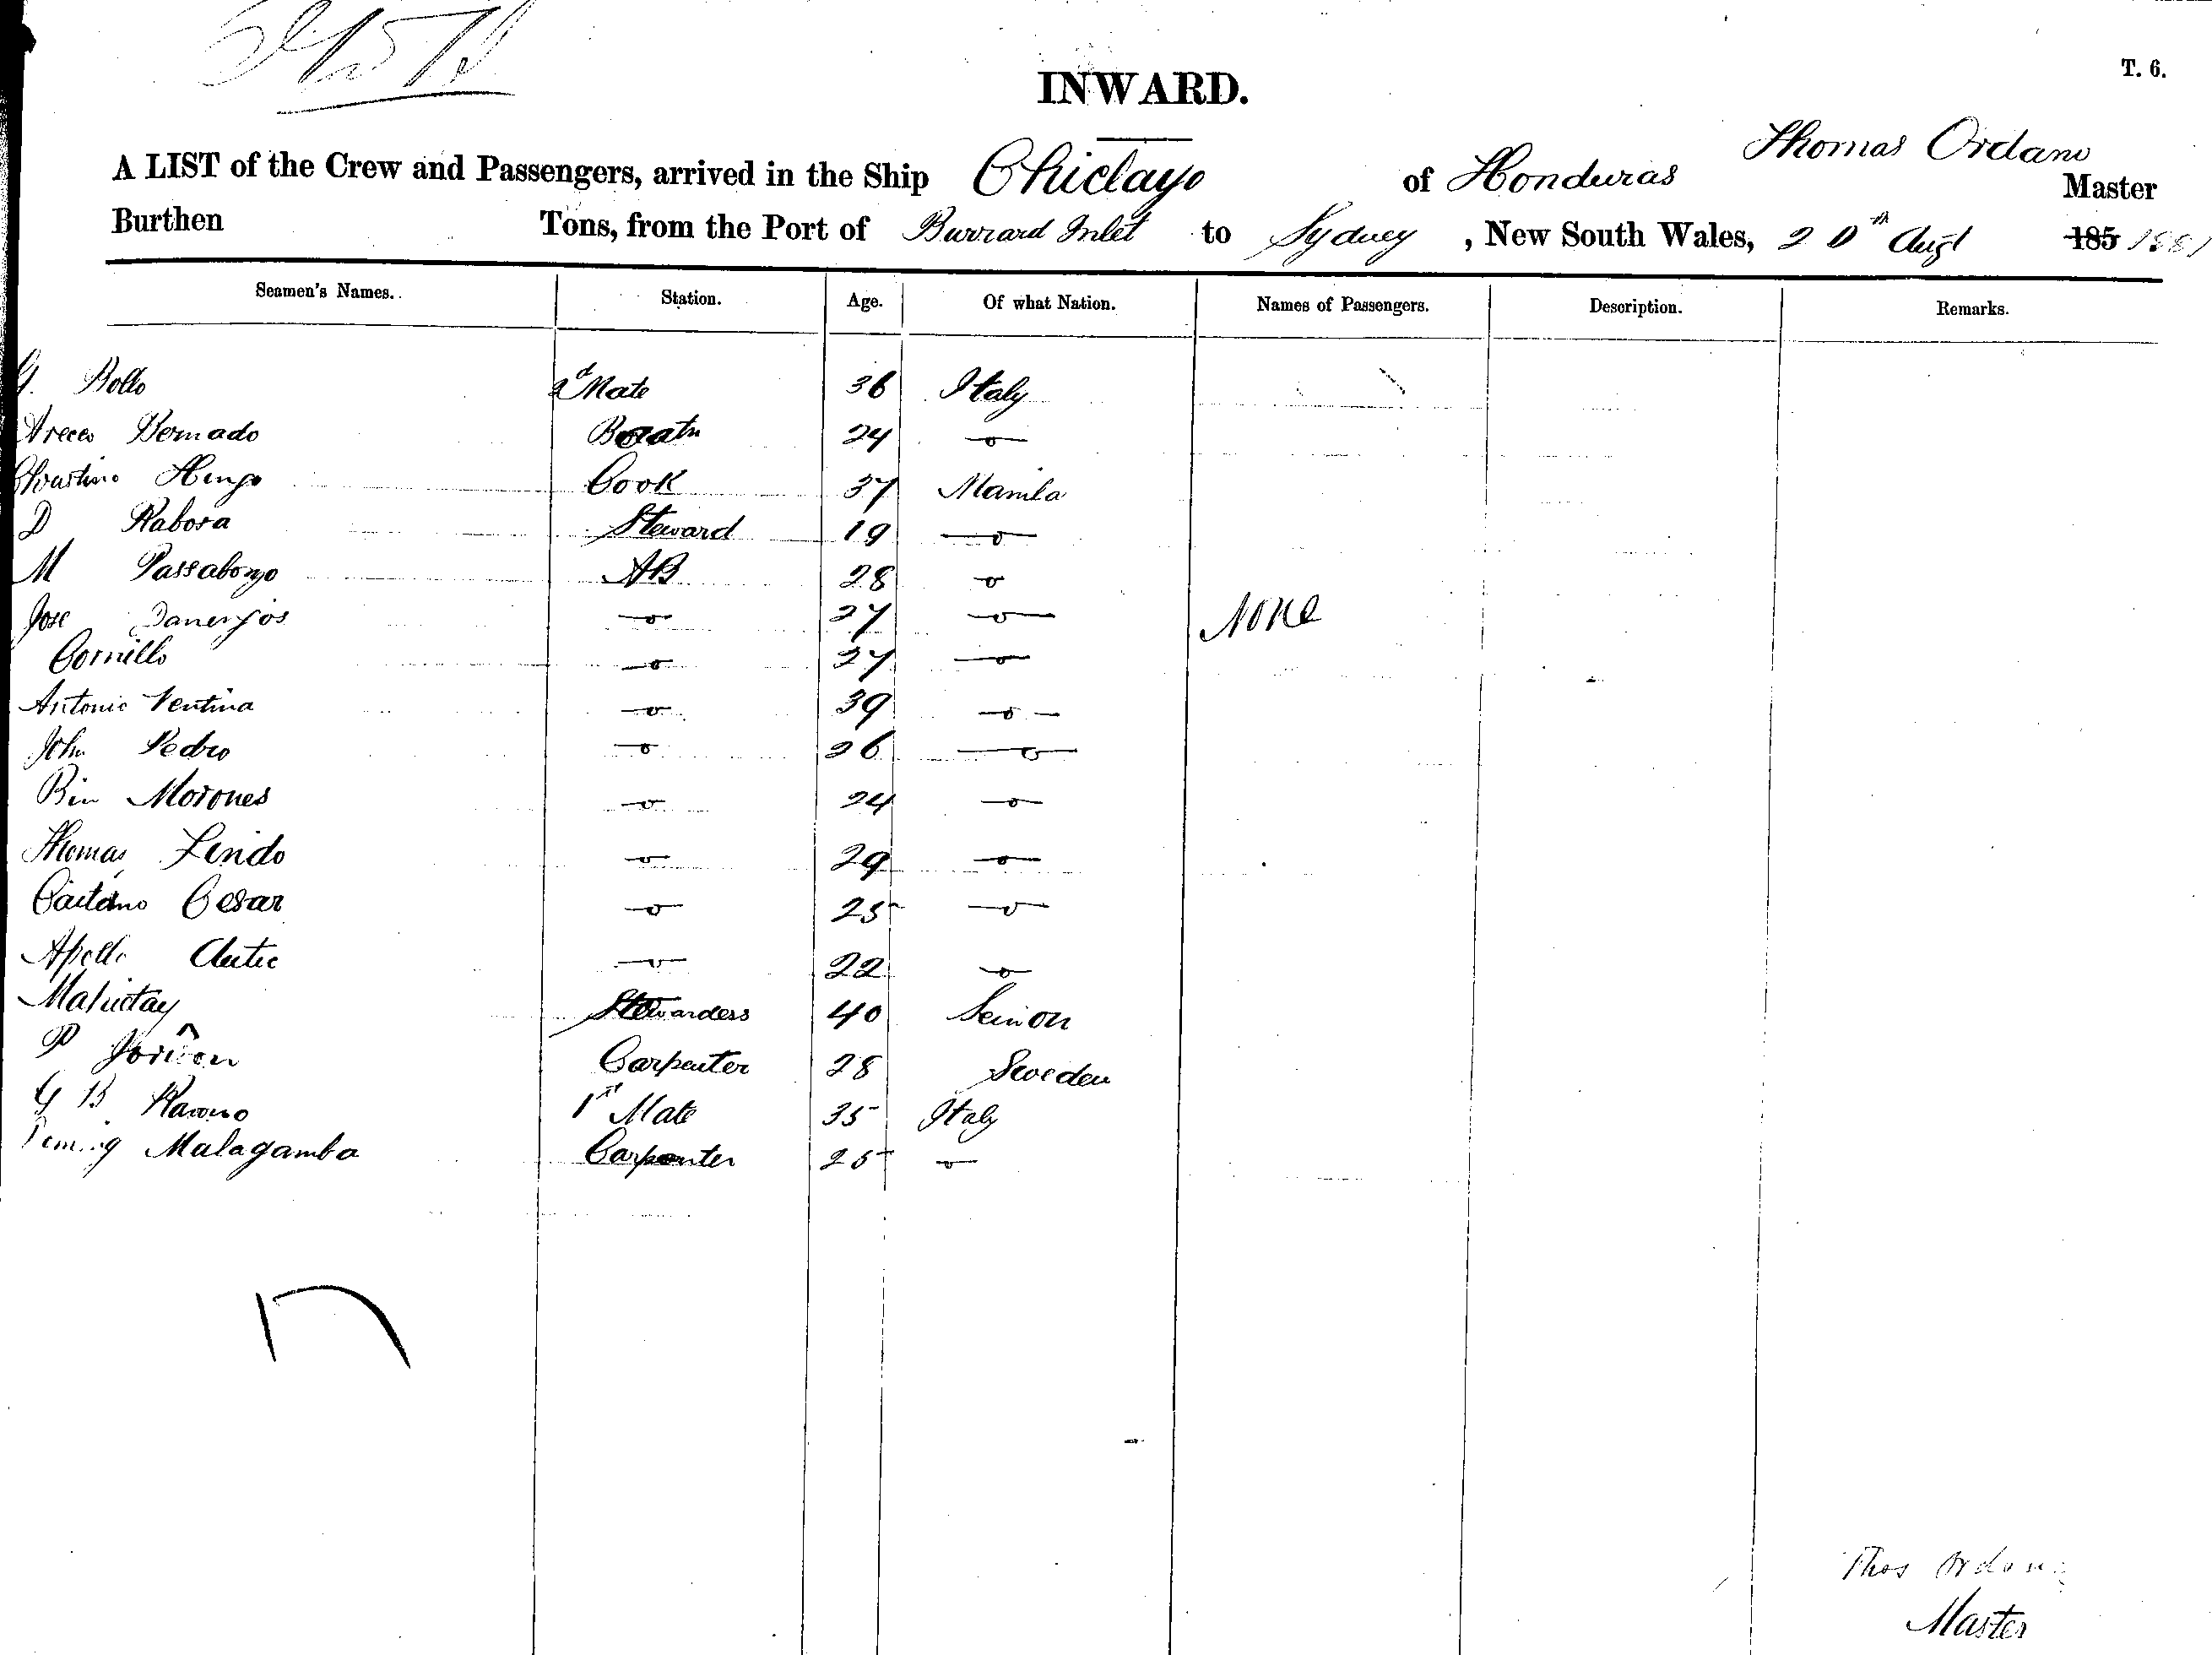 INWARD.
T. 6.
Thomas Ordano
A LIST of the Crew and Passengers, arrived in the Ship Chiclayo of Honduras Master
Burthen Tons, from the Port of Burrard Inlet to Sydney , New South Wales, 20th Augt 185 1881
Seamen's Names. Station. Age. Of what Nation. Names of Passengers. Description. Remarks.
G. Bollo 2d Mate 36 Italy
Bernado 24 —o—
Cook 37 Manila
D Rabora Steward 19 —o—
M Passabongo AB 28 —o—
Jose —o— 27 —o— None
Cornillo —o— 27 —o—
Antonio Ventina —o— 39 —o—
John Pedro —o— 26 —o—
Morones —o— 24 —o—
Thomas Lindo —o— 29 —o—
Caetano Cesar —o— 25 —o—
Apollo —o— 22 —o—
Stewardess 40
P Carpenter 28 Sweden
G B 1st Mate 35 Italy
Malagamba Carpenter 25 —o—
17
Thos Ordano
Master